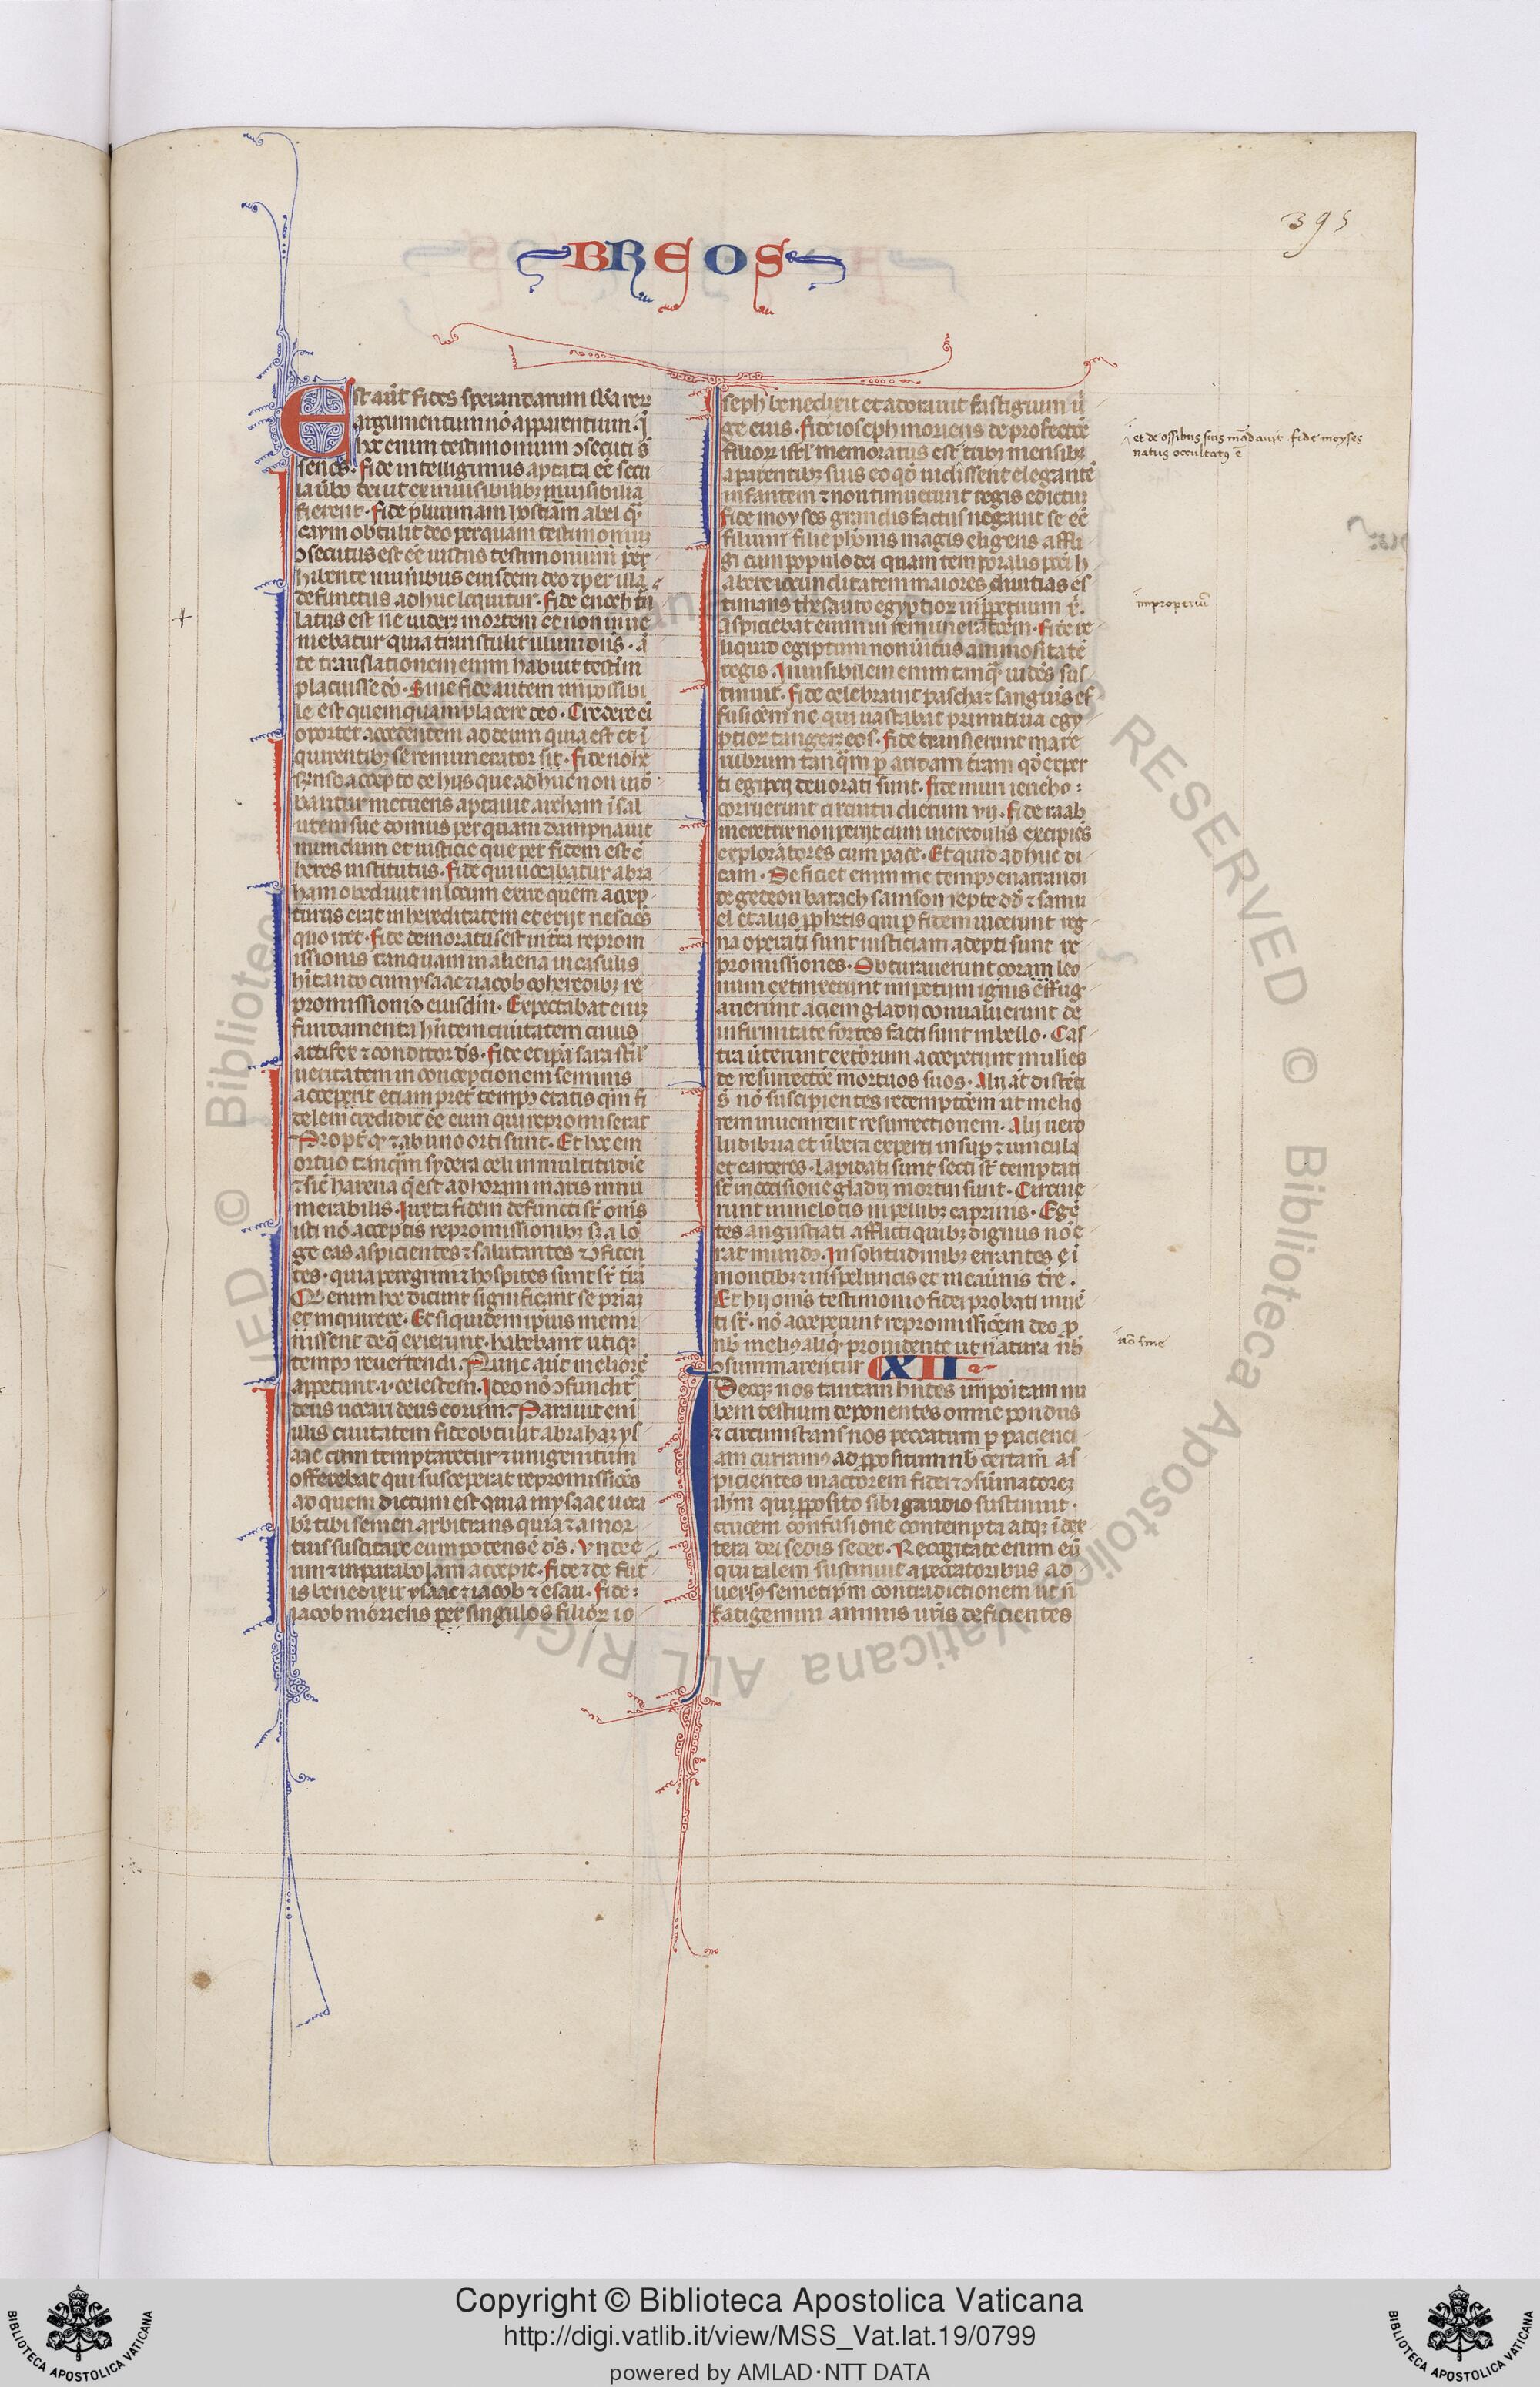 395
BREOS
Est aut̄ fides sperandarum sb̄a reꝝ
argumentum nō apparentium · ī
hac enim testimonium ɔsecuti sͭ
senes · fide intelligimus aptata eē secu
la ūbo dei ut ex inuisibilibꝫ inuisibilia
fierent · fide plurimam hostiam abel qͣ
caym obtulit deo per quam testimoniuꝫ
ɔsecutus est eē iustus testimonium per
hibente muneribus eiusdem deo ⁊ per illā
defunctus adhuc loquitur · fide enoch trāˢ
latus est ne uiderꝫ mortem et non inue
niebatur quia transtulit illum dn̄s · ā
te translationem enim habuit testīm
placuisse dō · Sine fide autem impossibi
le est quemquam placere deo · Credere eī
oportet accedentem ad deum quia est et ī
quirentibꝫ se remunerator sit · fide nohe
rn̄so accepto de hijs que adhuc non uidē
bantur metuens aptauit archam ī sal
utem sue domus per quam dampnauit
mundum et iusticie que per fidem est ē
heres institutus · fide qui uocabatur abra
ham obediuit in locum exire quem accep
turus erat in hereditatem et exijt nesciēs
quo iret · fide demoratus est in tr̄a reprom
issionis tanquam in aliena in casulis
hītando cum ysaac ⁊ iacob coheredibꝫ re
promissionis eiusdem · Expectabat eniꝫ
fundamenta hn̄tem ciuitatem cuius
artifex ⁊ conditor ds̄ · fide et ip̄a sara st̄il
uirtutatem in conceptionem seminis
accepit etiam pret̄ tempꝰ etatis qm̄ fi
delem credidit eē eum qui repromiserat
Propt̄ qͣ ⁊ ab uno orti sunt · Et hoc em
ortuo tanqͣm sydera celi in multitudīe
⁊ sic̄ harena q̄ est ad horam maris innu
merabilis · Iuxta fidem defuncti st̄ om̄s
isti nō acceptis repromissionibꝫ sꝫ a lō
ge eas aspicientes ⁊ salutantes ⁊ ɔfiten
tes · quia peregrini ⁊ hospites sunt sͬ t̄rā
Qͥ enim hoc dicunt significant se pr̄iaꝫ
et inquirere · Et siquidem ipsius memi
nissent de qͣ exierunt · habebant utiqꝫ
tempꝰ reuertendi · Nunc aut̄ meliorē
appetunt · i · celestem · Ideo nō ɔfundit̄
deus uocari deus eorum · Parauit enī
illis ciuitatem fide obtulit abrahaꝫ ys
aac cum temptaretur ⁊ unigenitum
offerebat qui susceperat repromissiōes
ad quem dictum est quia in ysaac uoca
bꝉ tibi semen arbitrans quia ⁊ a mor
tuis suscitare eum potens ē ds̄ · Vnde e
um ⁊ in parabolam accepit · fide ⁊ de fut̄
is benedixit ysaac ⁊ iacob ⁊ esau · fide :
iacob moriens per singulos filioꝝ io
seph benedixit et adorauit fastigium ū
ge eius · fide ioseph moriens de profectōe
filioꝝ isrl̄ memoratus est tribꝫ mensibꝫ
a parentibꝫ suis eo qd̄ uidissent elegantē
infantem ⁊ non timuerunt regis edictū
fide moyses grandis factus negauit se eē
filium filie pharaonis magis eligens affli
gi cum populo dei quam temporalis pcc̄i h
abere iocunditatem maiores diuitias es
timans thesauro egyptioꝝ in ppetuum xͥ ·
Aspiciebat enim in remunerat̄oem · fide re
liquid egiptum non ūitus animositatē
regis · Inuisibilem enim tanqͣ uidēs sus
tinuit · fide celebrauit pascha ⁊ sanguis ef
fusiōem ne qui uastabat primitiua egy
ptioꝝ tangerꝫ eos · fide transierunt mare
rubrum tanqͣm p aridam t̄ram qd̄ exper
ti egiptij deuorati sunt · fide muri iericho :
corruerunt circuitu dierum vij · fide raab
meretrix non perijt cum incredulis excipiēs
exploratores cum pace · Et quid adhuc di
cam · Deficiet enim me tempꝰ enarranti
de gedeon barach samson iepte dd̄ ⁊ samu
el et alijs pphetis qui p fidem uicerunt reg
na operati sunt iusticiam adepti sunt re
promissiones · Obturauerunt coram leo
num extinxerunt impetum ignis effug
auerunt aciem gladij conualuerunt de
infirmitate fortes facti sunt in bello · Cas
tra ūterunt exteꝝorum acceperunt mulieˢ
de resurrectōe mortuos suos · Alij at̄ distēti
sͭ nō suscipientes redemptōem ut melio
rem inuenirent resurrectionem · Alij uero
ludibria et ūbera experti insup ⁊ uincula
et carceres · Lapidati sunt secti st̄ temptati
st̄ in occisione gladij mortui sunt · Circuie
runt in melotis in pellibꝫ caprinis · Egē
tes angustiati afflicti quibꝫ dignus nō e
rat mundꝰ · In solitudinibꝫ errantes ⁊ ī
montibꝫ ⁊ in speluncis et in cauernis tr̄e ·
Et hij om̄s testimonio fidei probati inuē
ti st̄ · nō acceperunt repromissiōem deo p
nb̄ meliꝰ aliqͥ prouidente ut natura nb̄
ɔsummarentur XII
Ideoqꝫ nos tantam hn̄tes impoitam nu
bem testium deponentes omne pondus
⁊ circumstans nos peccatum p pacienci
am curramꝰ ad ppositum nb̄ certam̄ as
picientes in actorem fidei ⁊ ɔsūmatoreꝫ
ihm̄ qui pposito sibi gaudio sustinuit ·
crucem confusione contempta atqꝫ ī dex
tera dei sedis sedet · Recogitate enim eū
qui talem sustinuit a peccatoribus ad
uersꝰ semetip̄m contradictionem ut n̄
fatigemini animis ur̄is deficientes
et de ossibus suis mādauit . fide moyses
natus occultatꝰ ē
improperiū
nō sine
Copyright © Biblioteca Apostolica Vaticana
http://digi.vatlib.it/view/MSS_Vat.lat.19/0799
powered by AMLAD·NTT DATA
BIBLIOTECA APOSTOLICA VATICANA
BIBLIOTECA APOSTOLICA VATICANA